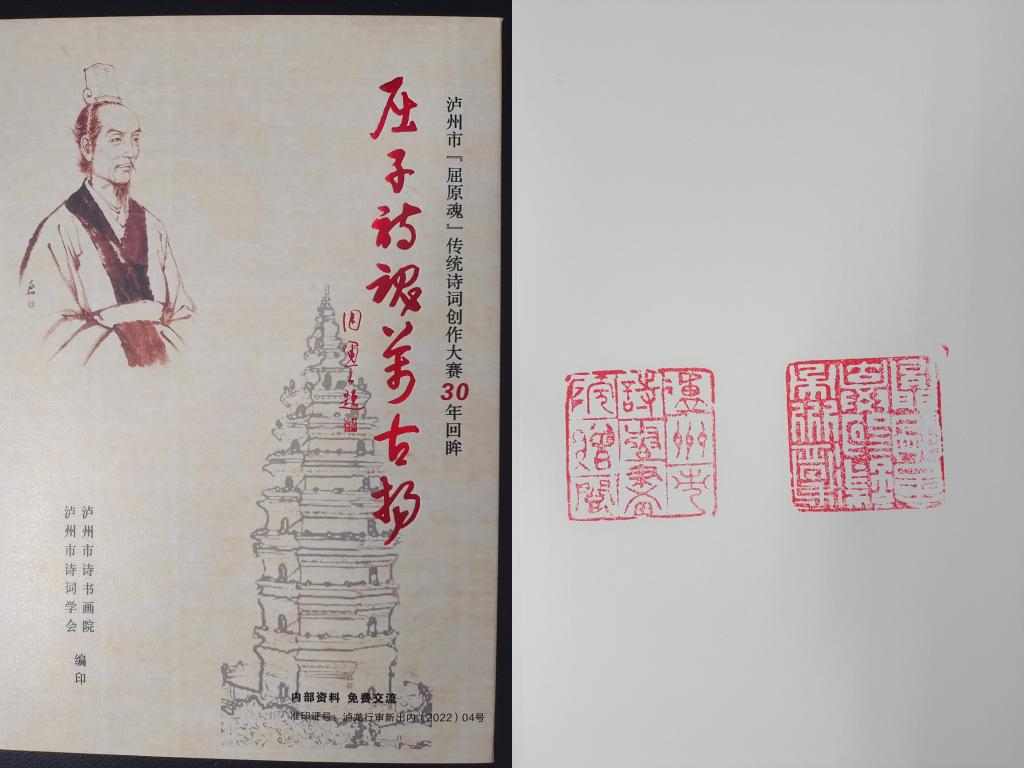 泸州市『屈原魂』传统诗词创作大赛30年回眸
屈子诗魂万古扬
周尝之题
泸州市诗书画院
泸州市诗词学会
编印
内部资料 免费交流
准印证号：泸龙行审新出内（2022）04号
瀘州市
詩書畫
院增閱